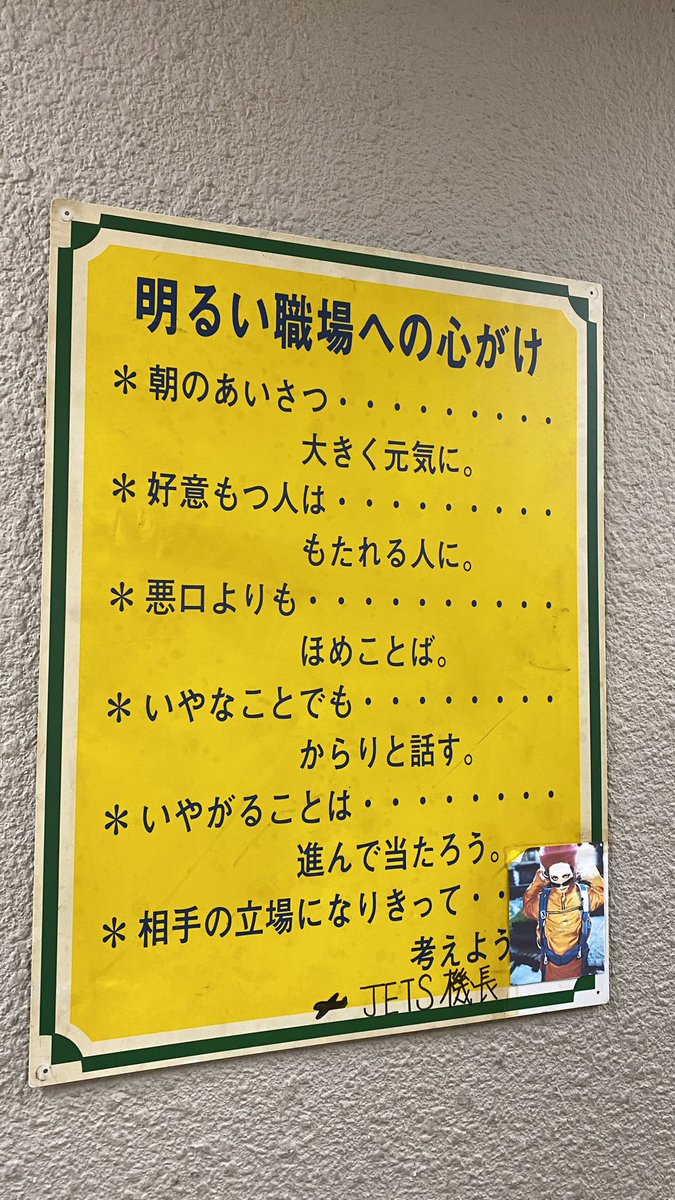 明るい職場への心がけ
＊朝のあいさつ・・・・・・・・・
大きく元気に。
＊好意もつ人は・・・・・・・・・
もたれる人に。
＊悪口よりも・・・・・・・・・・
ほめことば。
＊いやなことでも・・・・・・・・
からりと話す。
＊いやがることは・・・・・・・・
進んで当たろう。
＊相手の立場になりきって・・
考えよう
JETS機長